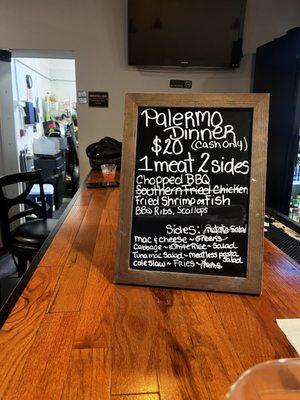 Palermo
Dinner
$20 (Cash Only)
1 meat 2 sides
Chopped BBQ
Southern Fried Chicken
Fried Shrimp or Fish
BBQ Ribs, Scallops
Sides: Potato Salad
mac & cheese ~ Greens
Cabbage ~ White Rice ~ Salad
Tuna mac Salad ~ meatless pasta Salad
coleslaw ~ Fries ~ Yams